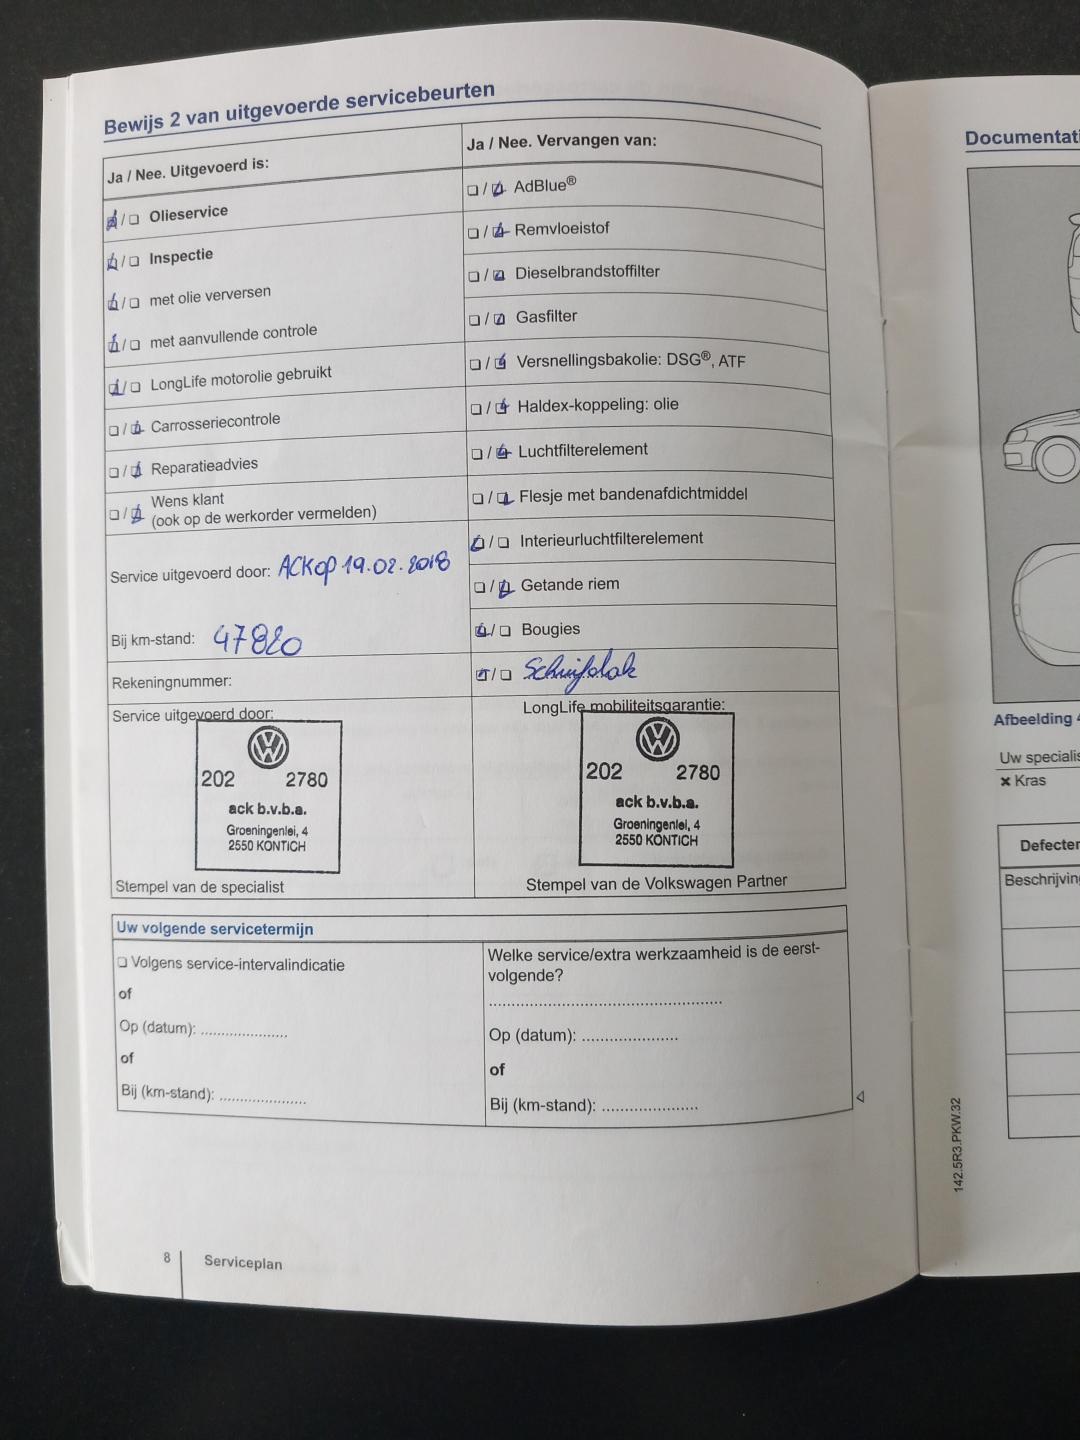 Bewijs 2 van uitgevoerde servicebeurten
Ja / Nee. Uitgevoerd is:
☑/☐ Olieservice
☑/☐ Inspectie
☑/☐ met olie verversen
☑/☐ met aanvullende controle
☑/☐ LongLife motorolie gebruikt
☐/☑ Carrosseriecontrole
☐/☑ Reparatieadvies
☐/☑ Wens klant
(ook op de werkorder vermelden)
Service uitgevoerd door: ACK op 19.02.2018
Bij km-stand: 47820
Rekeningnummer:
Service uitgevoerd door:
202 2780
ack b.v.b.a.
Groeningenlei, 4
2550 KONTICH
Stempel van de specialist
Ja / Nee. Vervangen van:
☐/☑ AdBlue®
☐/☑ Remvloeistof
☐/☑ Dieselbrandstoffilter
☐/☑ Gasfilter
☐/☑ Versnellingsbakolie: DSG®, ATF
☐/☑ Haldex-koppeling: olie
☐/☑ Luchtfilterelement
☐/☑ Flesje met bandenafdichtmiddel
☑/☐ Interieurluchtfilterelement
☐/☑ Getande riem
☑/☐ Bougies
☑/☐ Schuifdak
LongLife mobiliteitsgarantie:
202 2780
ack b.v.b.a.
Groeningenlei, 4
2550 KONTICH
Stempel van de Volkswagen Partner
Uw volgende servicetermijn
☐ Volgens service-intervalindicatie
of
Op (datum): .....................
of
Bij (km-stand): .....................
Welke service/extra werkzaamheid is de eerst-
volgende?
.....................................................
Op (datum): .....................
of
Bij (km-stand): .....................
8 Serviceplan
Documentati
Afbeelding 4
Uw specialis
× Kras
Defecten
Beschrijving
142.5R3.PKW.32